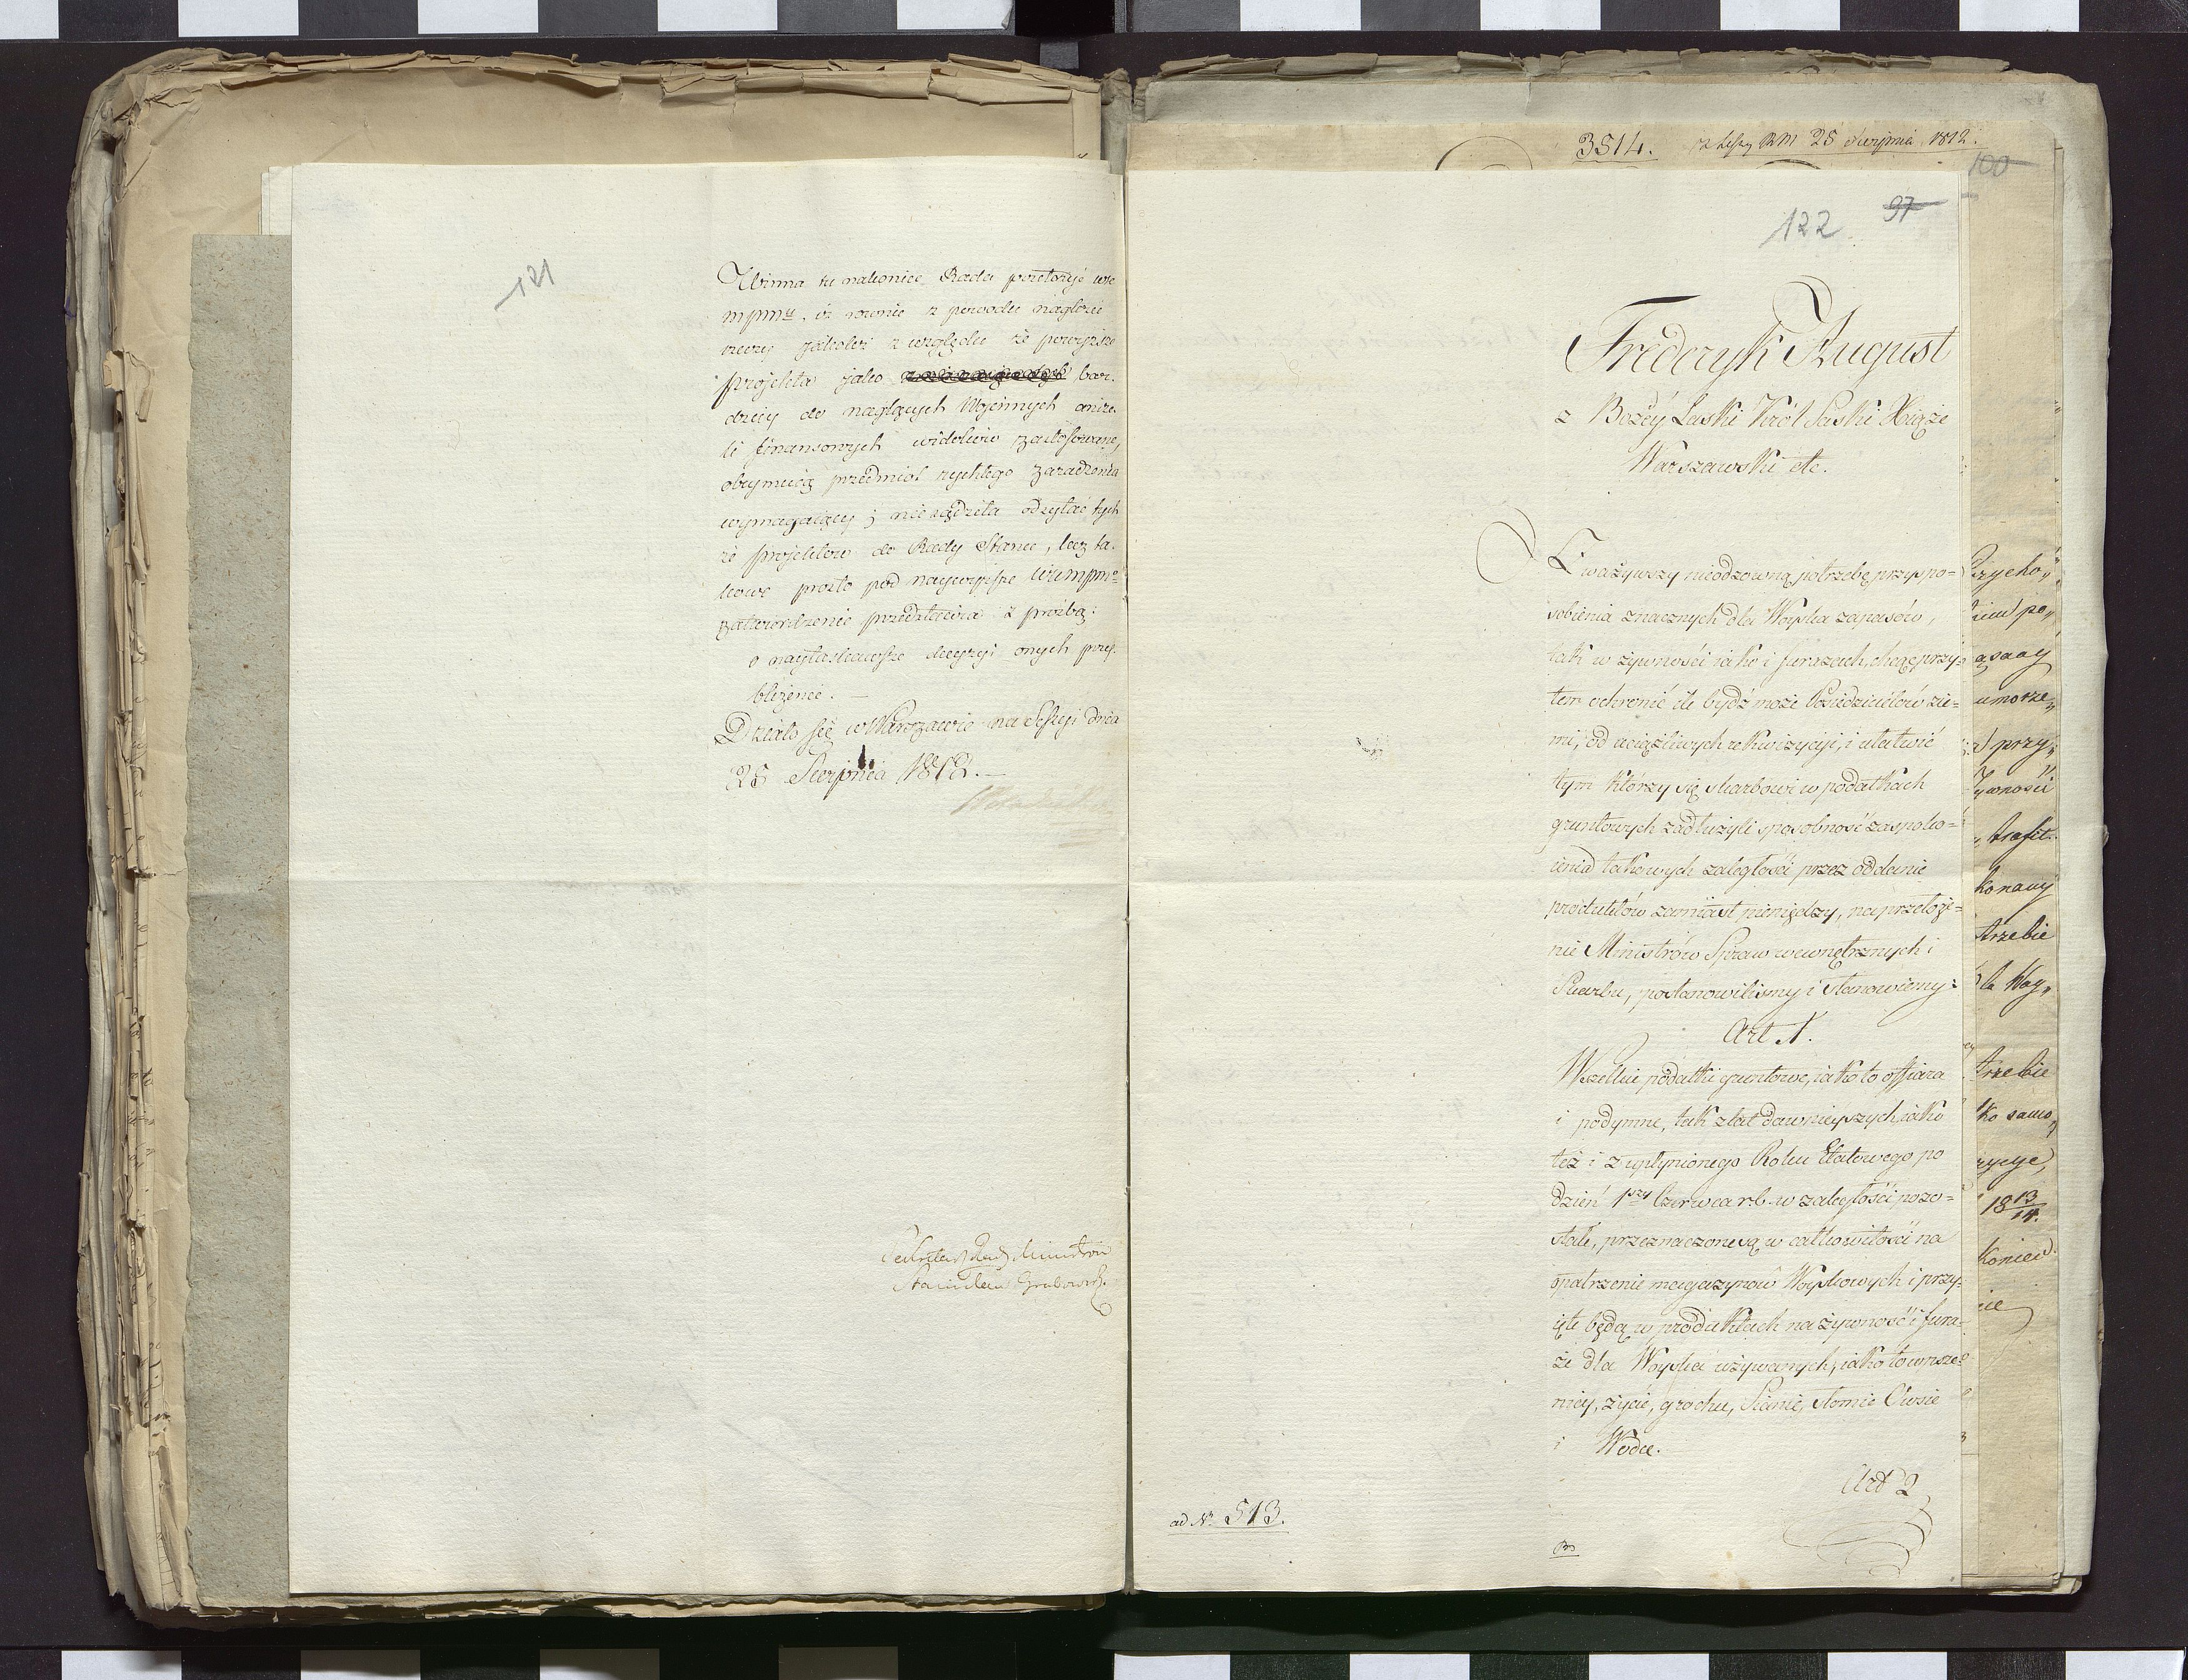 121
Winna tu nakoniec Rada przełożyć wc
mpmu. iż równie z powodu nagłości
rzeczy jakoteż z względu że powyższe
projekta jako bar-
dziey do naglących Woiennych aniże-
li finansowych widoków zastosowane,
obeymuią przedmiot rychłego zaradzenia
wymagaiący; nie sądziła odsyłać tych
że projektów do Rady Stanu, lecz ta-
kowe prosto pod naywyższe wcmpmo
zatwierdzenie przedstawia z prośbą:
o nayłaskawsze decyzyi onych przy-
bliżenie. —
Działo się w Warszawie na Sessyi dnia
25 Sierpnia 1812. —
Sekretarz Rady Ministrów
Stanisław Grabowski
3514. z Sessyi RM 25 Sierpnia 1812.
100
97
122
Fryderyk August
z Bożéy Łaski Król Saski Xiąże
Warszawski etc.
Zważywszy nieodzowną potrzebę przyspo=
sobienia znacznych dla Woyska zapasów,
tak w żywności iako i furażach, chcąc przy=
tem ochronić ile bydź może Posiedzicielów zie=
mi, od uciążliwych rekwizycyi, i ułatwić
tym którzy się skarbowi w podatkach
gruntowych zadłużyli sposobność zaspoko=
ienia takowych zaległości przez oddanie
produktów zamiast pieniędzy, na przełoże=
nie Ministrów Spraw wewnętrznych i
Skarbu, postanowiliśmy i stanowiemy:
Art 1.
Wszelkie podatki gruntowe, iako to ofiara
i podymne, tak z lat dawnieyszych, iako
też i z upłynionego Roku Etatowego po
dzień 1szy Czerwca r.b. w zaległości pozo=
stałe, przeznaczone są w całkowitości na
opatrzenie magazynów Woyskowych i przy=
ięte będą w produktach na żywność i fura=
że dla Woyska używanych, iako to w psze=
nicy, życie, grochu, Sianie, słomie Owsie
i Wódce.
Art 2
ad No 513.
rzycho„
po„
ągaay
umorze„
przy„
żywności
trafit.
konauy
trzebie
la Woy„
trzebie
ko samo„
rycye,
18 13/14.
koniec